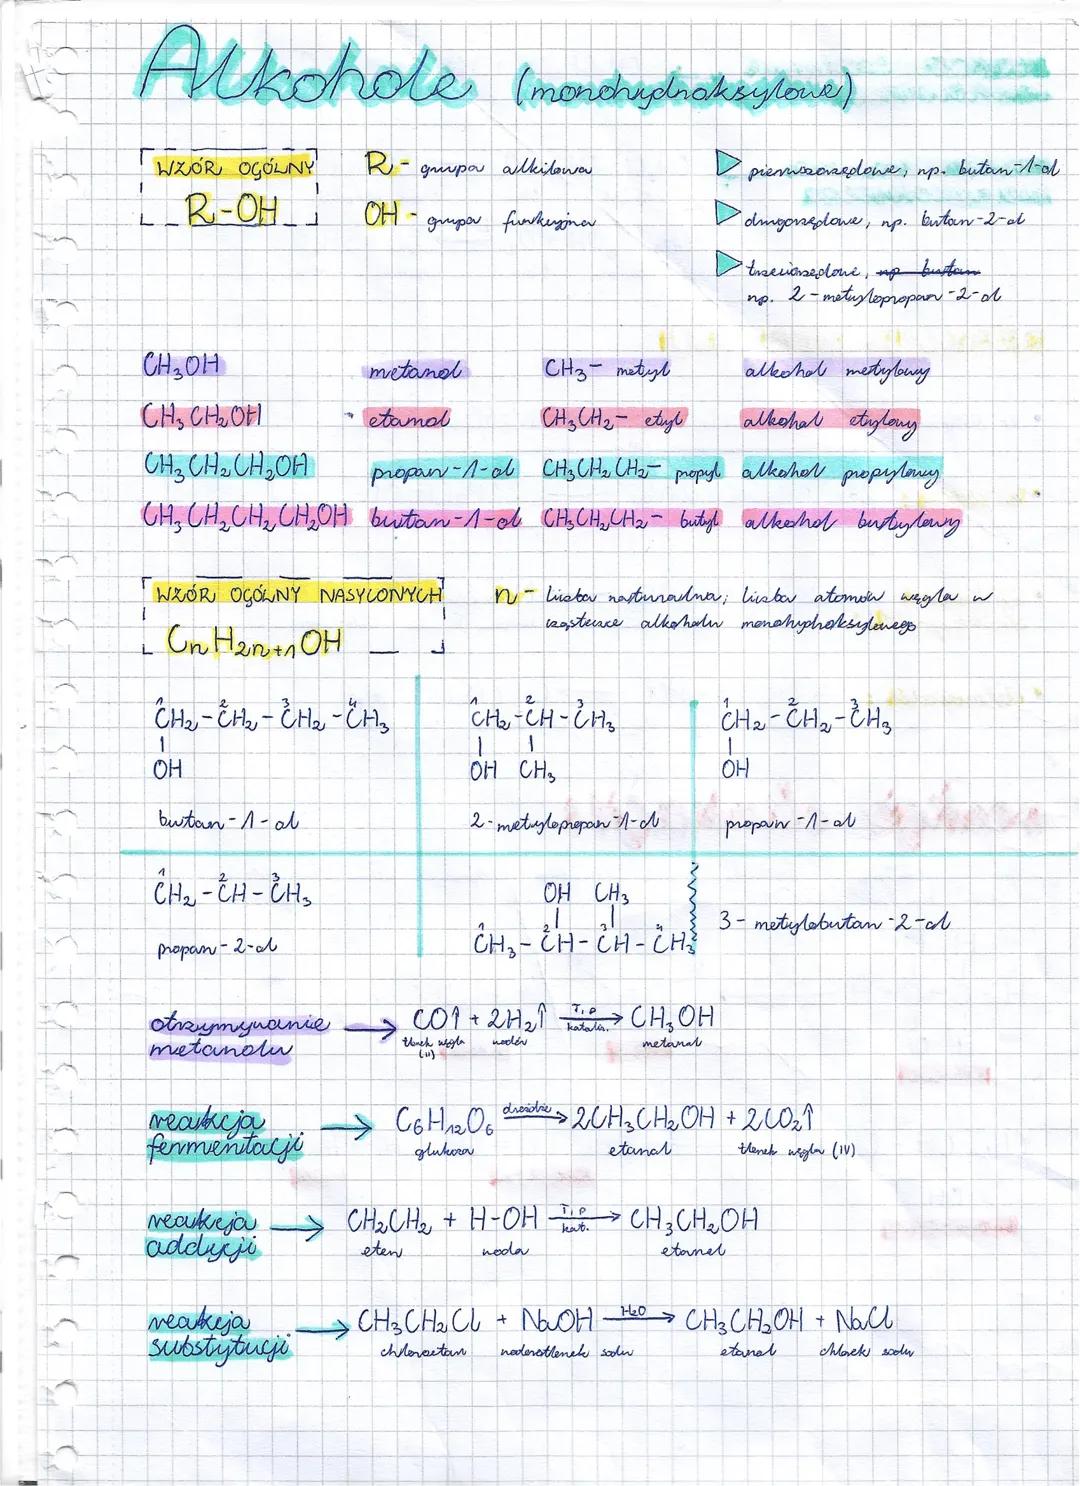 Alkohole (monohydroksylowe)
WZÓR OGÓLNY
R-OH
R - grupa alkilowa
OH - grupa funkcyjna
pierwszorzędowe, np. butan-1-ol
drugorzędowe, np. butan-2-ol
trzeciorzędowe, np butan
np. 2-metylopropan-2-ol
CH₃OH metanol CH₃- metyl alkohol metylowy
CH₃CH₂OH etanol CH₃CH₂- etyl alkohol etylowy
CH₃CH₂CH₂OH propan-1-ol CH₃CH₂CH₂- propyl alkohol propylowy
CH₃CH₂CH₂CH₂OH butan-1-ol CH₃CH₂CH₂- butyl alkohol butylowy
WZÓR OGÓLNY NASYCONYCH
CnH2n+1OH
n - liczba naturalna; liczba atomów węgla w
cząsteczce alkoholu monohydroksylowego
1 2 3 4
CH₂-CH₂-CH₂-CH₃
OH
butan-1-ol
1 2 3
CH₂-CH-CH₃
OH CH₃
2-metylopropan-1-ol
1 2 3
CH₂-CH₂-CH₃
OH
propan-1-ol
1 2 3
CH₂-CH-CH₃
propan-2-ol
OH CH₃
1 2 3 4
CH₃-CH-CH-CH₃
3-metylobutan-2-ol
otrzymywanie
metanolu
→ CO↑ + 2H₂↑ T,p katalis. → CH₃OH
tlenek węgla (II) wodór metanol
reakcja
fermentacji
→ C₆H₁₂O₆ drożdże → 2CH₃CH₂OH + 2CO₂↑
glukoza etanol tlenek węgla (IV)
reakcja
addycji
→ CH₂CH₂ + H-OH T,p kat. → CH₃CH₂OH
eten woda etanol
reakcja
substytucji
→ CH₃CH₂Cl + NaOH H₂O → CH₃CH₂OH + NaCl
chloroetan wodorotlenek sodu etanol chlorek sodu